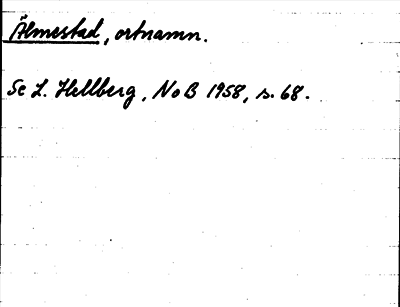 Älmestad, ortnamn.
Se L. Hellberg, NoB 1958, s. 68.